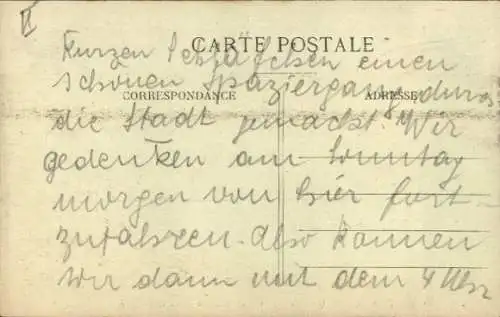 II
CARTE POSTALE
Kurzen Schläfchen einen
schönen Spaziergang durch
CORRESPONDANCE ADRESSE
die Stadt gemacht. Wir
gedenken am Sonntag
morgen von hier fort-
zufahren. Also kommen
wir dann mit dem 4 Uhr